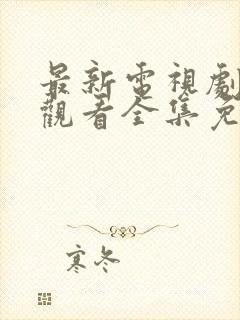 最新電視劇
觀看全集免
寒冬